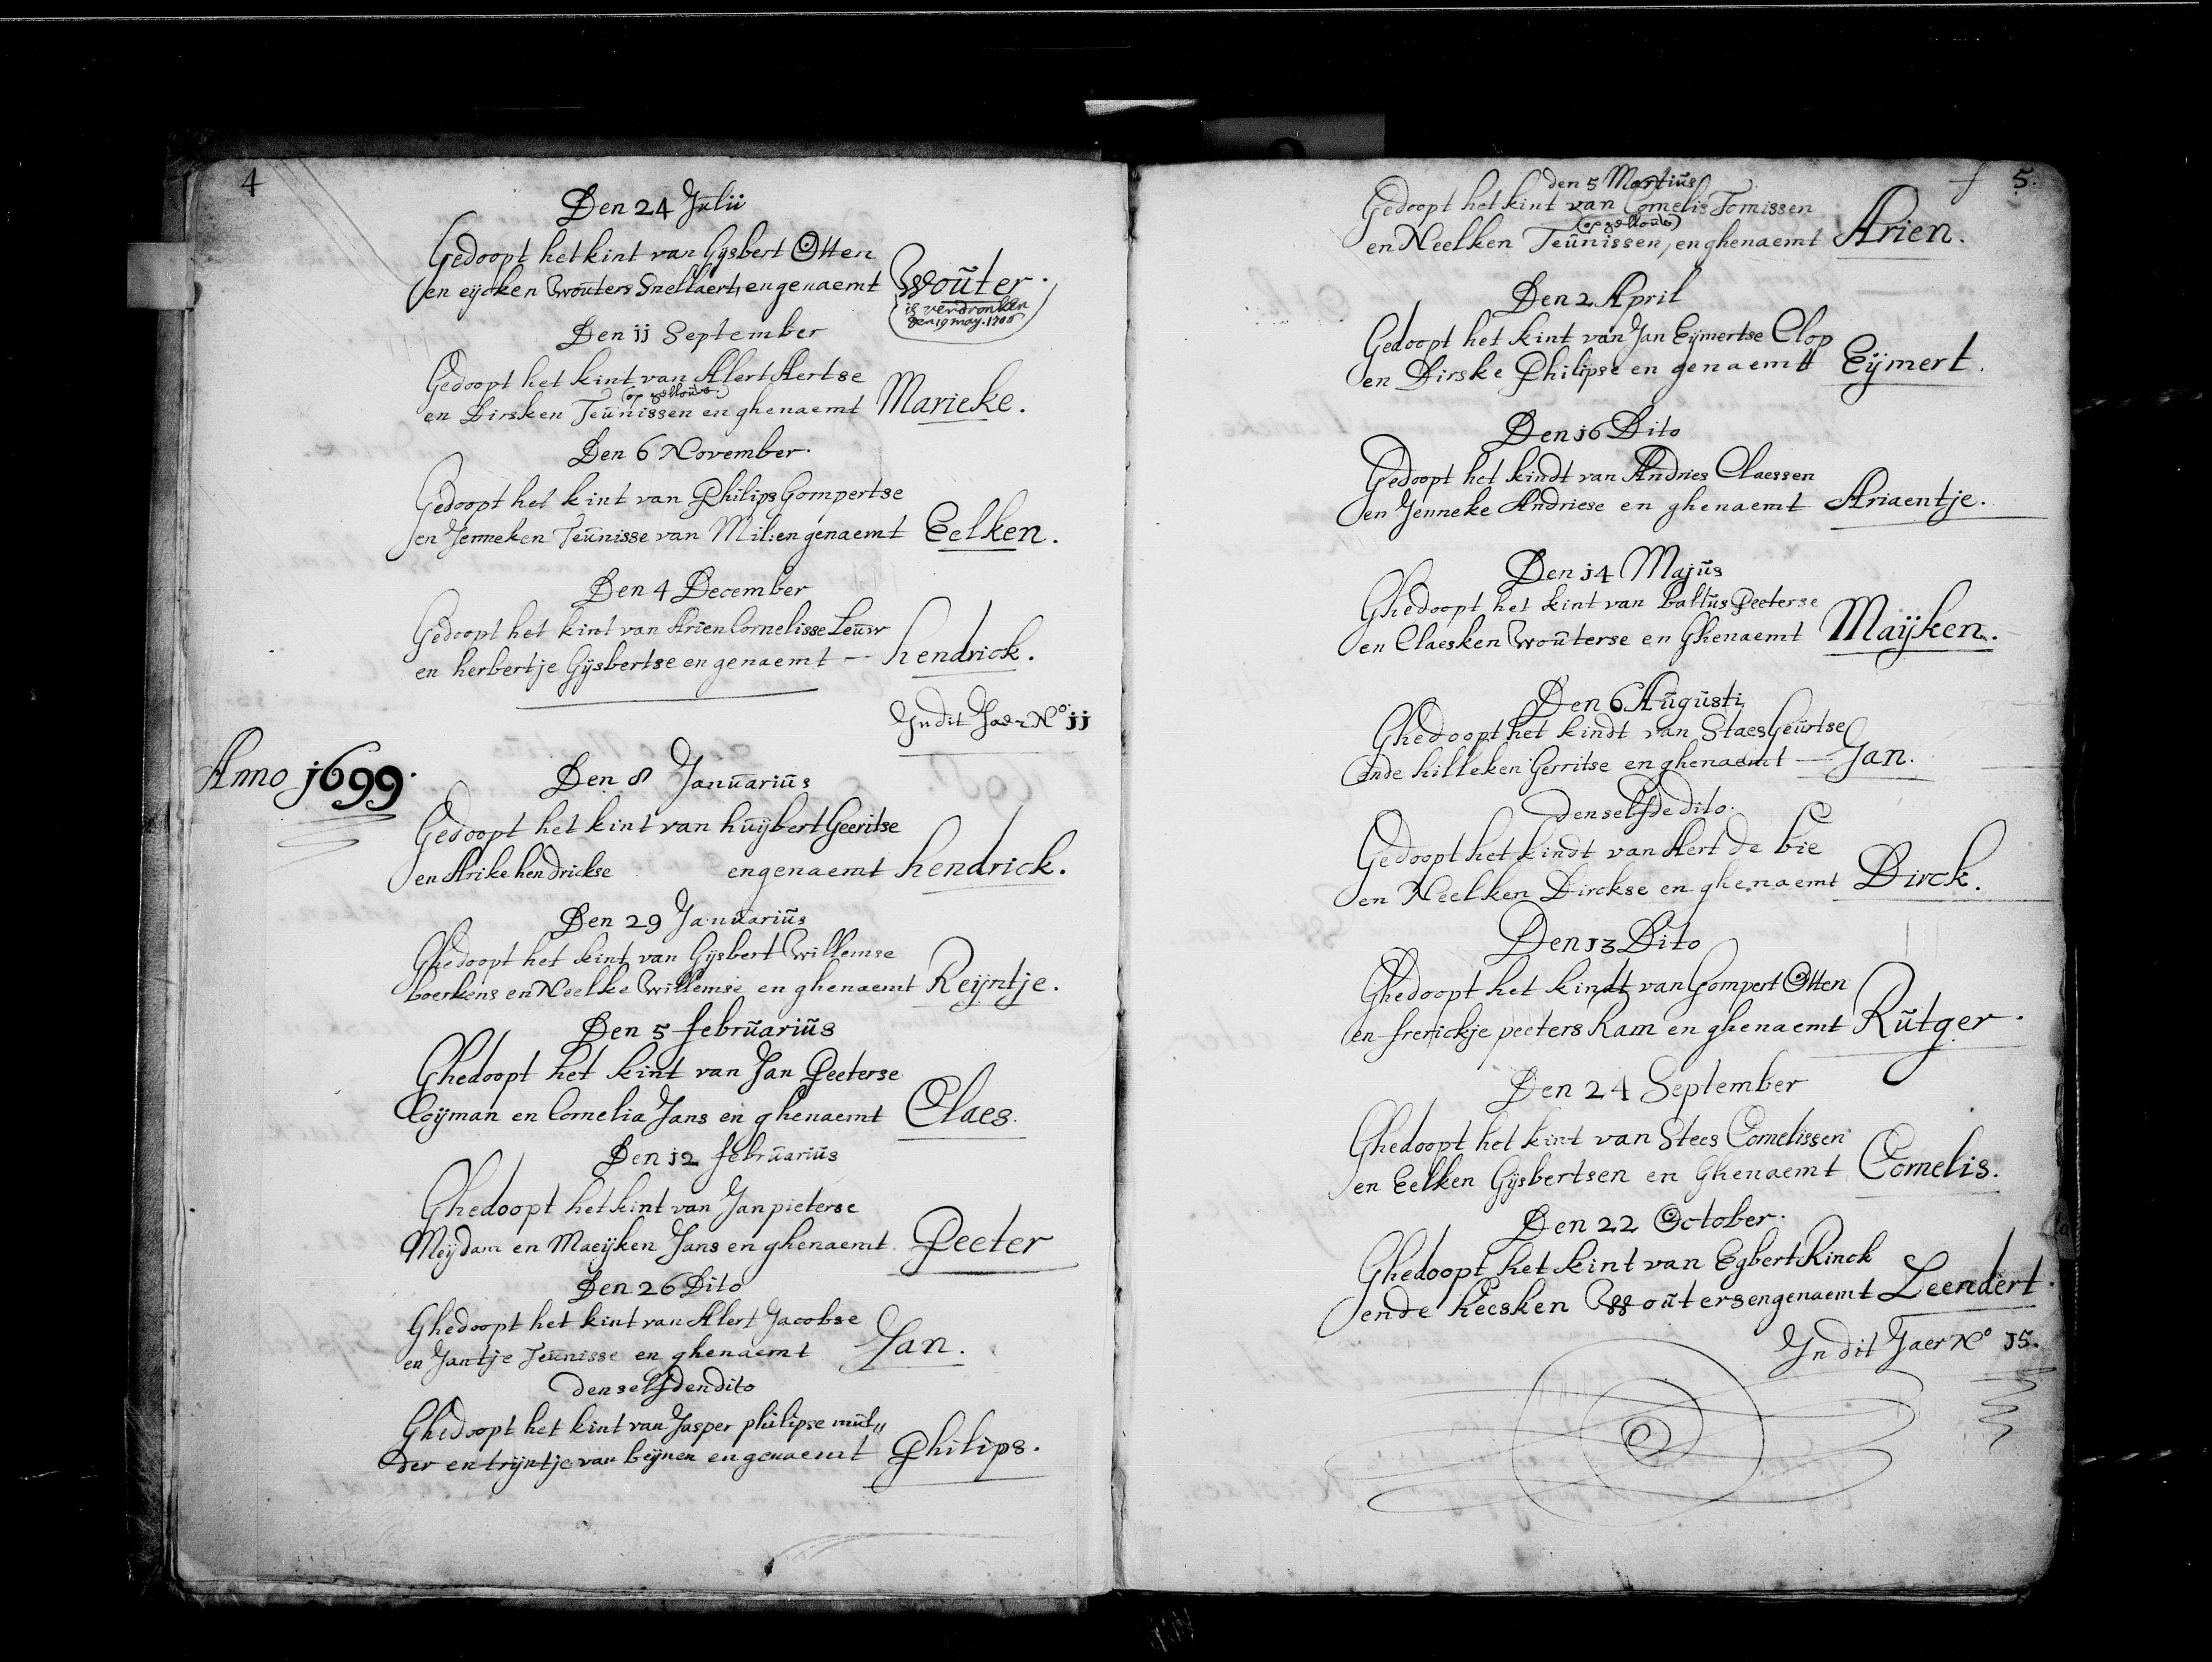 4
Den 24 Julii
Gedoopt het kint van Gijsbert Otten
en eijcken Wouters Snellaert, en genaemt Wouter.
is verdroncken
den 19 may. 1706
Den jj September
Gedoopt het kint van Alert Aertse
(op gelkoude)
en Dirsken Teunissen en ghenaemt Marieke.
Den 6 November.
Gedoopt het kint van Philips Gompertse
en Jenneken Teunisse van Mil: en genaemt Eelken.
Den 4 December
Gedoopt het kint van Arien Cornelisse Leuw
en herbertje Gijsbertse en genaemt — hendrick.
Jn dit Jaer No jj
Anno j699.
Den 8 Januarius
Gedoopt het kint van huijbert Geeritse
en Arike hendrickse en genaemt hendrick.
Den 29 Januarius
Ghedoopt het kint van Gijsbert Willemse
boerkens en Neelke Willemse en ghenaemt Reijntje.
Den 5 februarius
Ghedoopt het kint van Jan Peeterse
Coijman en Cornelia Jans en ghenaemt Claes.
Den j2 februarius
Ghedoopt het kint van Jan pieterse
Meijdam en Maeijken Jans en ghenaemt Peeter
Den 26 Dito
Ghedoopt het kint van Alert Jacobse
en Jantje Teunisse en ghenaemt Jan.
den selfden dito
Ghedoopt het kint van Jasper philipse mul„
der en trijntje van beijnen en genaemt Philips.
5.
den 5 Martius
Gedoopt het kint van Cornelis Tomissen
en Neelken Teunissen, en ghenaemt Arien.
Den 2 April
Gedoopt het kint van Jan Eijmertse Clop
en Dirske Philipse en genaemt Eijmert.
Den j6 Dito
Gedoopt het kindt van Andries Claessen
en Jenneke Andriese en ghenaemt Ariaentje.
Den j4 Majus
Ghedoopt het kint van baltus Peeterse
en Claesken Wouterse en Ghenaemt Maijken.
Den 6 Augusti
Ghedoopt het kindt van Staes Geurtse
ende hilleken Gerritse en ghenaemt — Jan.
den selfde dito.
Gedoopt het kindt van Aert de bie
en Neelken Dirckse en ghenaemt Dirck.
Den J3 Dito
Ghedoopt het kindt van Gompert Otten
en frerickje peeters Ram en ghenaemt Rutger.
Den 24 September
Ghedoopt het kint van Stees Cornelissen
en Eelken Gijsbertsen en Ghenaemt Cornelis.
Den 22 October.
Ghedoopt het kint van Egbert Rinck
ende heesken Wouters en genaemt Leendert.
Jn dit Jaer No J5.